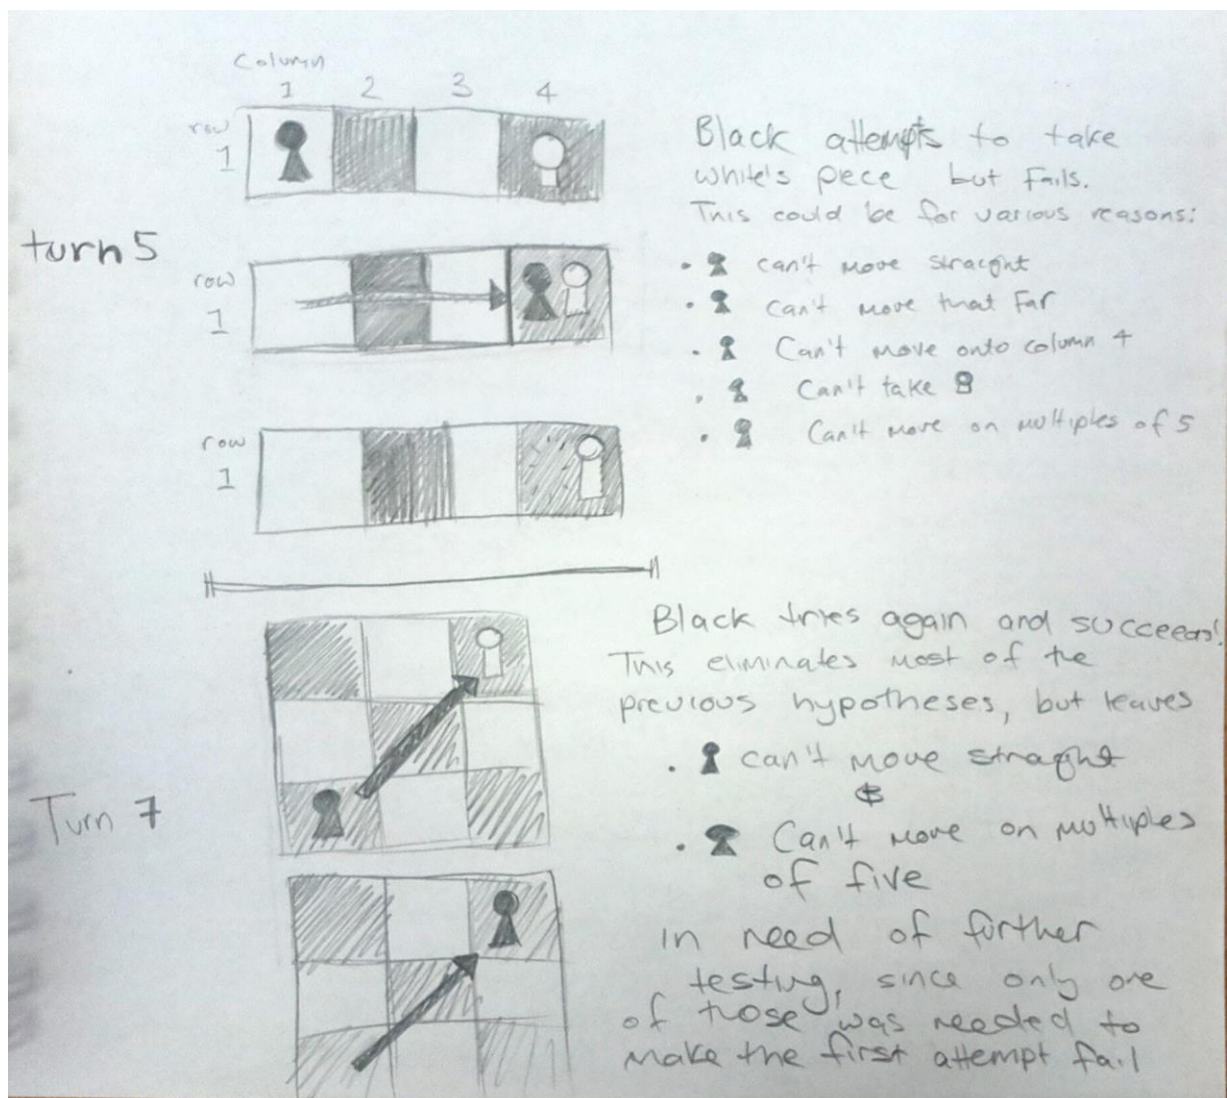 Column
1 2 3 4
row
1
Black attempts to take
white's piece but fails.
This could be for various reasons:
turn 5
row
1
• can't move straight
• can't move that far
• Can't move onto column 4
• Can't take
• Can't move on multiples of 5
row
1
Black tries again and succeeds!
This eliminates most of the
previous hypotheses, but leaves
• can't move straight
&
Turn 7
• Can't move on multiples
of five
in need of further
testing, since only one
of those was needed to
make the first attempt fail